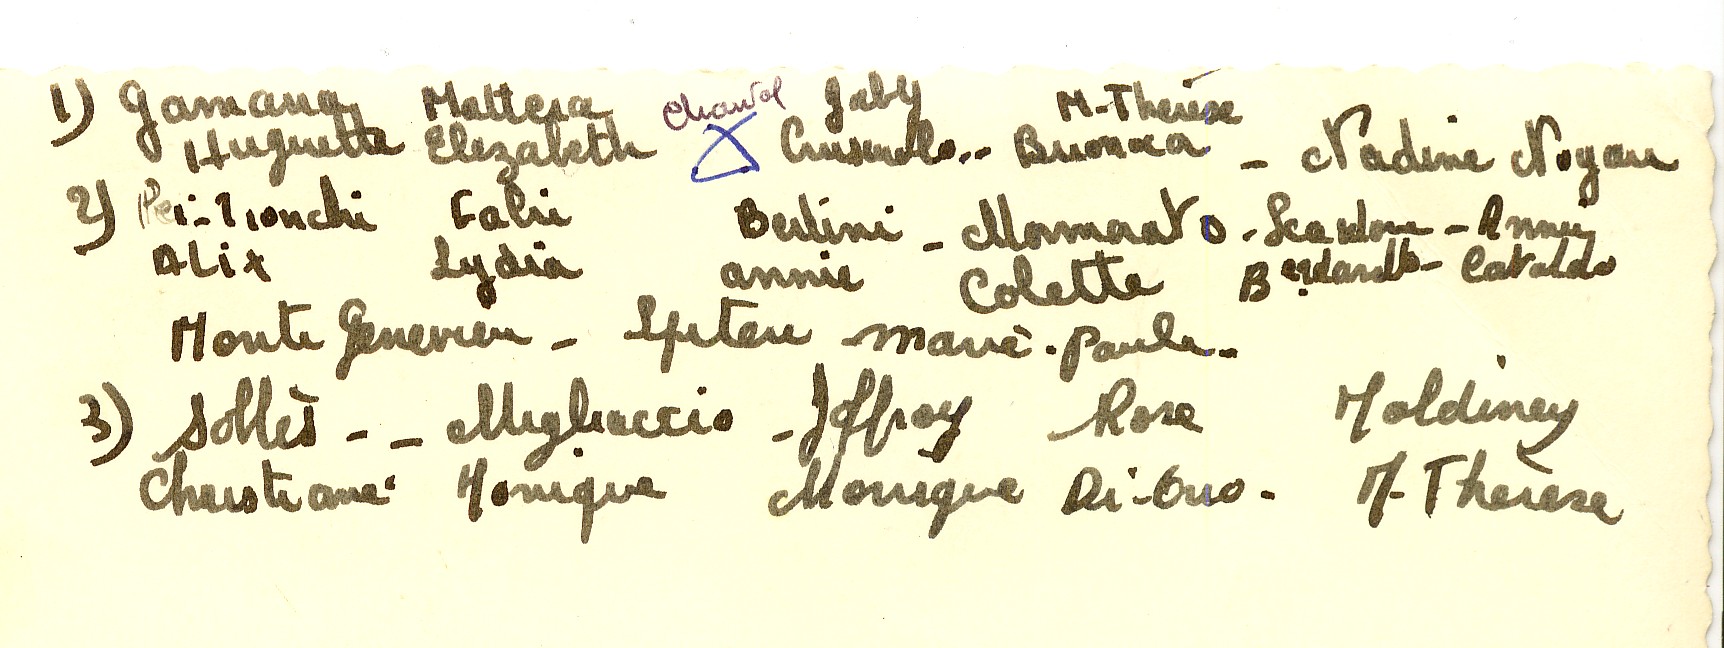 1) Gamana Mattera Chantal Gaby M-Thérèse
Huguette Elizabeth X - Nadine Noyau
2) Pei-Tronchi Falie Bertini - Mormorato - Scardone - Annie
Alix Lydia annie Colette Cataldo
Monti Geneviève - Spiteri Marie-Paule -
3) Sollès - - Migliaccio - Joffroy Rose Moldiney
Christiane Monique Monique Di-Cuio - M-Thérèse